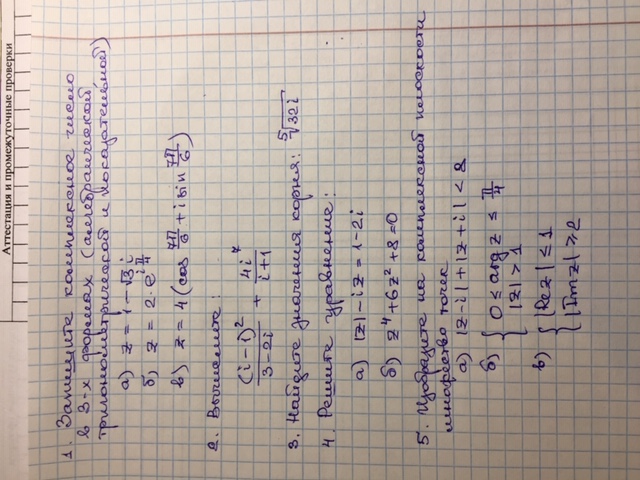 Аттестация и промежуточные проверки
1. Запишите комплексное число
в 3-х формах (алгебраической
тригонометрической и показательной)
а) z = 1 - √3 i
б) z = 2·e^{i π/4}
в) z = 4 (cos 7π/6 + i sin 7π/6)
2. Вычислите:
(i-1)²/(3-2i) + 4i⁷/(i+1)
3. Найдите значения корня: ⁵√32i
4. Решите уравнение:
а) |z| - iz = 1-2i
б) z⁴+6z²+8=0
5. Изобразите на комплексной плоскости
множество точек
а) |z-i|+|z+i| < 8
б) { 0 ≤ arg z ≤ π/4
|z| > 1
в) { |Re z| ≤ 1
|Im z| ≥ 2